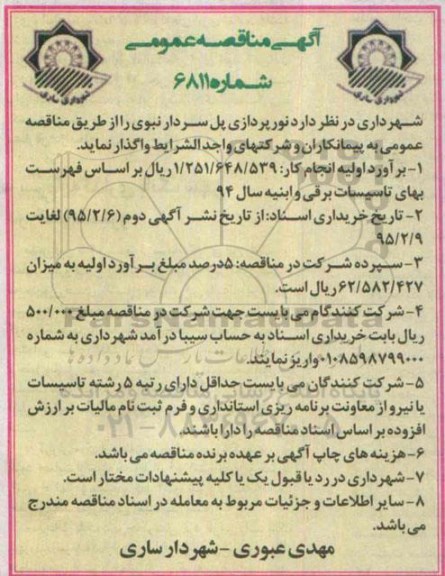 آگهی مناقصه عمومی
شماره ۶۸۱۱
شهرداری ساری
شهرداری ساری
شهرداری در نظر دارد نورپردازی پل سردار نبوی را از طریق مناقصه
عمومی به پیمانکاران و شرکتهای واجد الشرایط واگذار نماید.
۱- برآورد اولیه انجام کار: ۱/۲۵۱/۶۴۸/۵۳۹ ریال بر اساس فهرست
بهای تاسیسات برقی و ابنیه سال ۹۴
۲- تاریخ خریداری اسناد: از تاریخ نشر آگهی دوم (۹۵/۲/۶) لغایت
۹۵/۲/۹
۳- سپرده شرکت در مناقصه: ۵درصد مبلغ برآورد اولیه به میزان
۶۲/۵۸۲/۴۲۷ ریال است.
۴- شرکت کنندگام می بایست جهت شرکت در مناقصه مبلغ ۵۰۰/۰۰۰
ریال بابت خریداری اسناد به حساب سیبا درآمد شهرداری به شماره
۰۱۰۸۵۹۸۷۹۹۰۰۰ واریز نمایند.
۵- شرکت کنندگان می بایست حداقل دارای رتبه ۵ رشته تاسیسات
یا نیرو از معاونت برنامه ریزی استانداری و فرم ثبت نام مالیات بر ارزش
افزوده بر اساس اسناد مناقصه را دارا باشند.
۶- هزینه های چاپ آگهی بر عهده برنده مناقصه می باشد.
۷- شهرداری در رد یا قبول یک یا کلیه پیشنهادات مختار است.
۸- سایر اطلاعات و جزئیات مربوط به معامله در اسناد مناقصه مندرج
می باشد.
مهدی عبوری - شهردار ساری